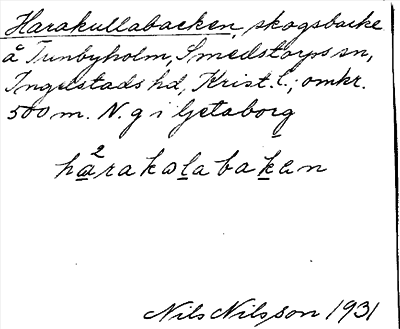 Harakullabacken, skogsbacke
å Tunbyholm, Smedstorps sn,
Ingelstads hd, Krist. l.; omkr.
500 m. N. g i Getaborg
ha²rakωlabakėn
Nils Nilsson 1931